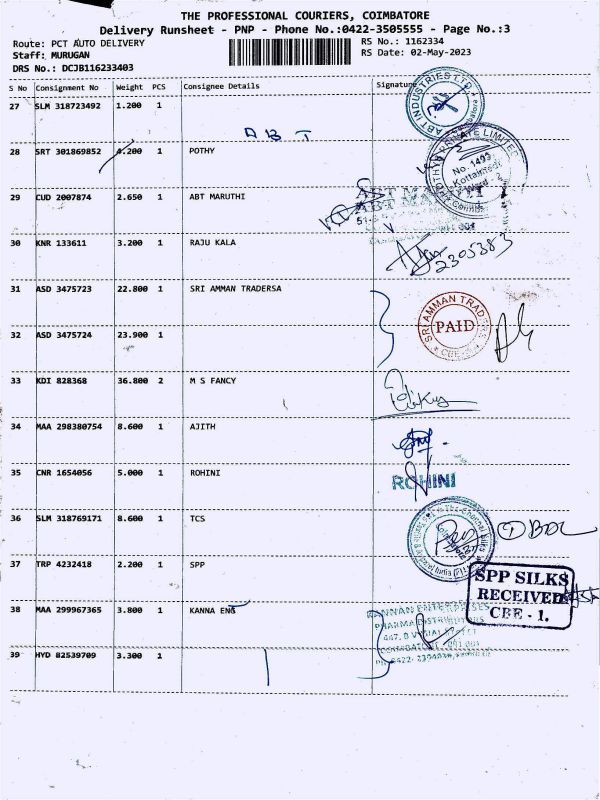 THE PROFESSIONAL COURIERS, COIMBATORE
Delivery Runsheet - PNP - Phone No.:0422-3505555 - Page No.:3
Route: PCT AUTO DELIVERY RS No.: 1162334
Staff: MURUGAN RS Date: 02-May-2023
DRS No.: DCJB116233403
S No Consignment No Weight PCS Consignee Details Signature
27 SLM 318723492 1.200 1
ABT INDUSTRIES LTD.
A B T
28 SRT 301869852 4.200 1 POTHY
PRIVATE LIMITED
No. 1493
29 CUD 2007874 2.650 1 ABT MARUTHI
30 KNR 133611 3.200 1 RAJU KALA
2305383
31 ASD 3475723 22.800 1 SRI AMMAN TRADERSA
SRI AMMAN TRADERS
PAID
CBE
32 ASD 3475724 23.900 1
33 KDI 828368 36.800 2 M S FANCY
34 MAA 298380754 8.600 1 AJITH
35 CNR 1654056 5.000 1 ROHINI
ROHINI
36 SLM 318769171 8.600 1 TCS
37 TRP 4232418 2.200 1 SPP
SPP SILKS
RECEIVED
CBE - 1.
38 MAA 299967365 3.800 1 KANNA ENS
KANNAN ENTERPRISES
PHARMA DISTRIBUTORS
39 HYD 82539709 3.300 1